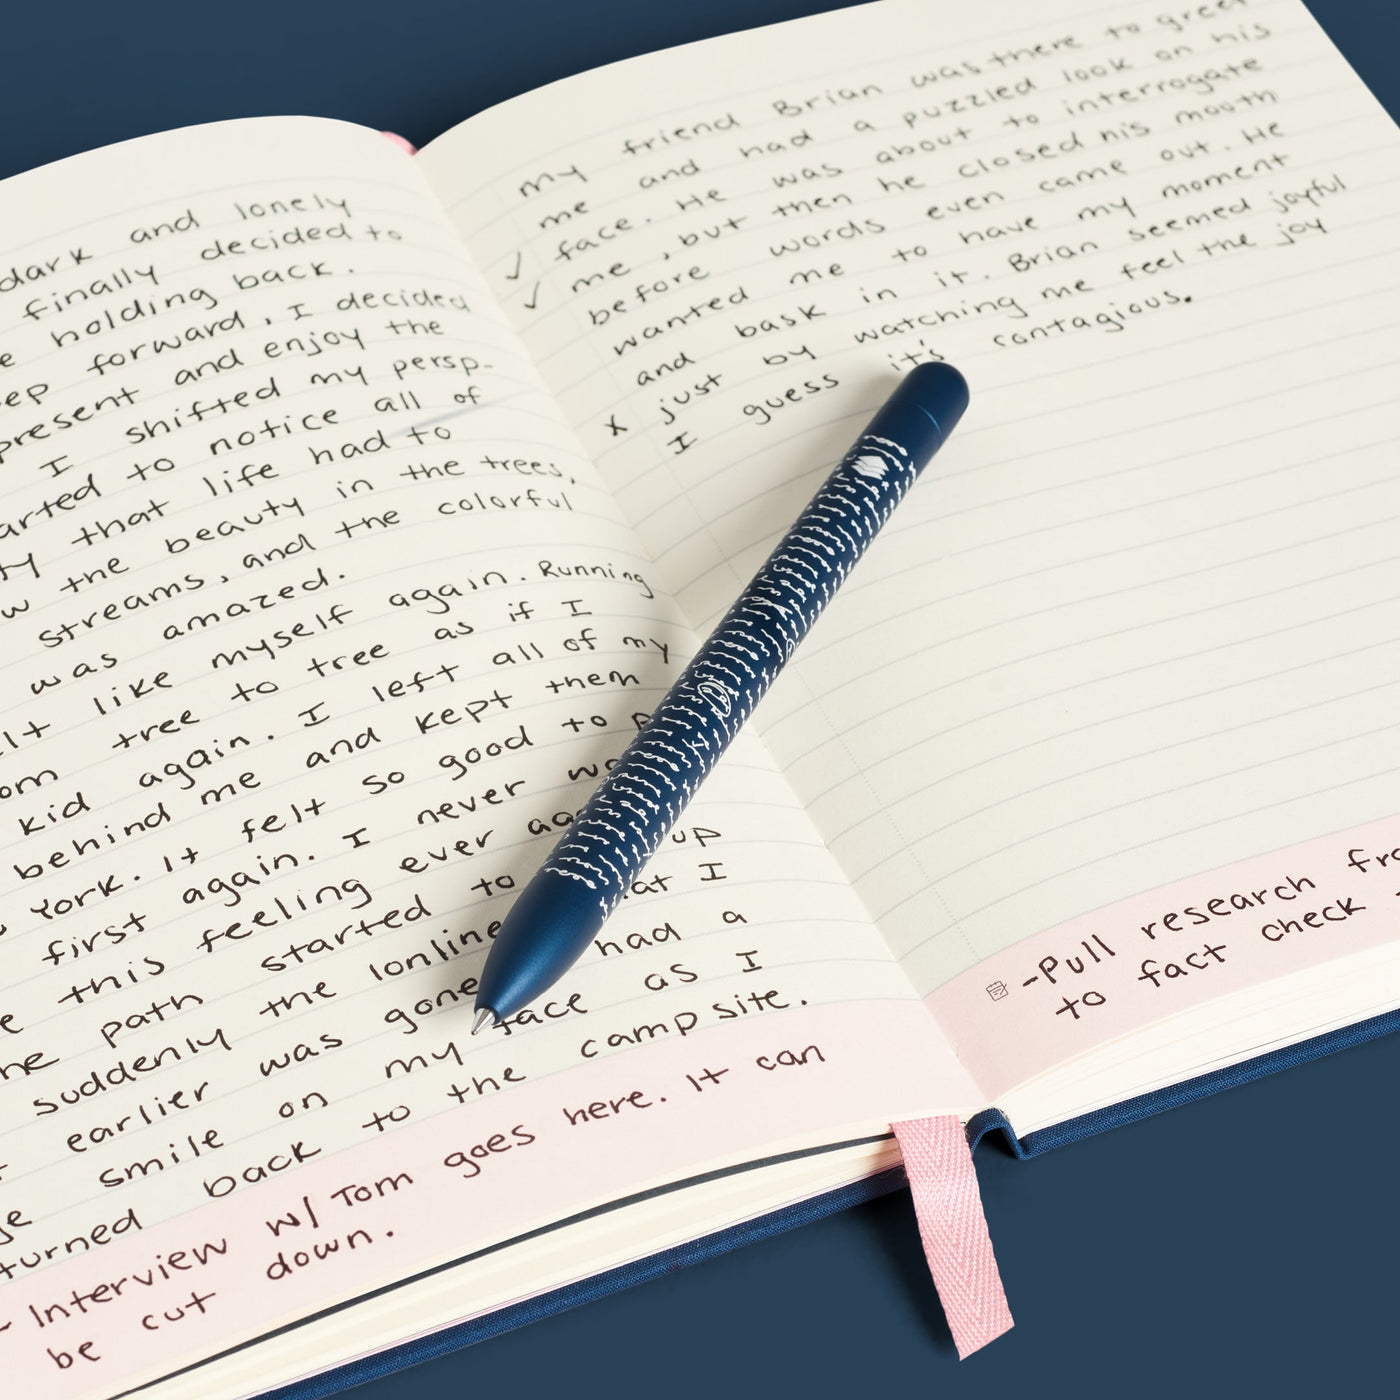 dark and lonely
finally decided to
holding back.
forward, I decided
present and enjoy the
I shifted my persp-
to notice all of
that life had to
the beauty in the trees,
streams, and the colorful
was amazed.
like myself again. Running
tree to tree as if I
kid again. I left all of my
behind me and kept them
York. It felt so good to
first again. I never
this feeling ever
path started to up
suddenly the lonline I
earlier was gone had a
smile on my face as I
turned back to the camp site.
- Interview w/ Tom goes here. It can
be cut down.
my friend Brian was there to greet
me and had a puzzled look on his
face. He was about to interrogate
✓ me, but then he closed his mouth
✓ before words even came out. He
wanted me to have my moment
and bask in it. Brian seemed joyful
x just by watching me feel the joy
I guess it's contagious.
-Pull research
to fact check